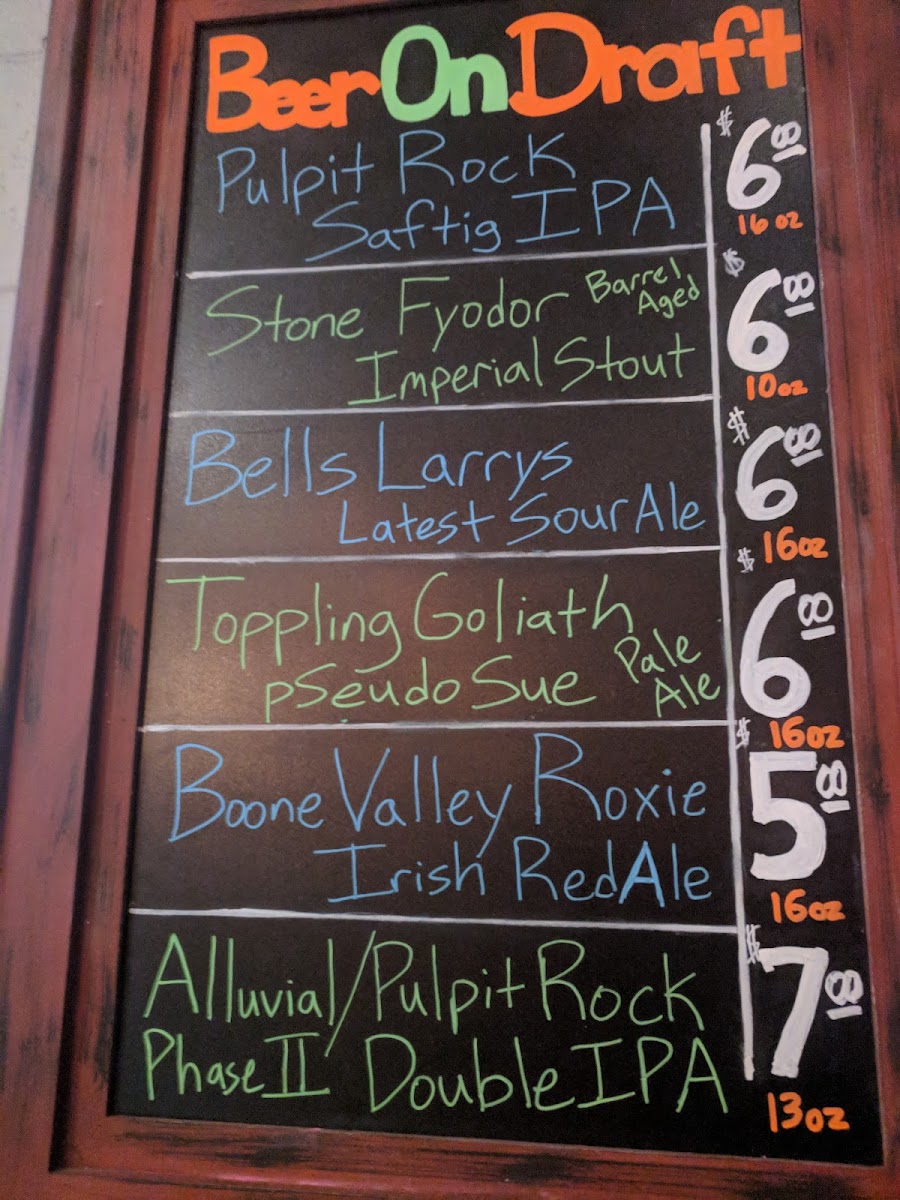 Beer On Draft
Pulpit Rock
Saftig IPA
$6 00
16 oz
Stone Fyodor Barrel Aged
Imperial Stout
$6 00
10 oz
Bells Larrys
Latest Sour Ale
$6 00
16 oz
Toppling Goliath
pseudo Sue Pale Ale
$6 00
16 oz
Boone Valley Roxie
Irish Red Ale
$5 00
16 oz
Alluvial/Pulpit Rock
Phase II Double IPA
$7 00
13 oz